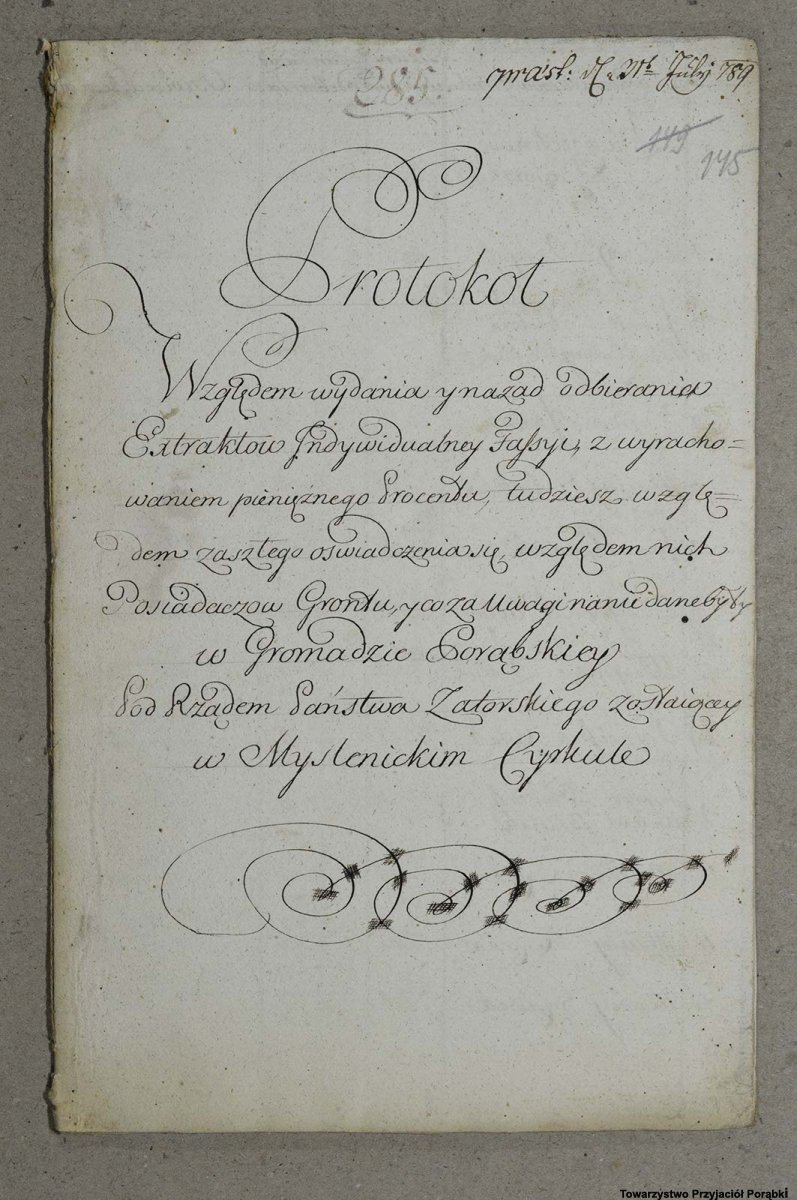 285.
July 789
149
145
Protokoł
Względem wydania y nazad odbierania
Extraktow Indywidualney Fassyi, z wyracho=
waniem pieniężnego Procentu, tudziesz wzglę=
dem zaszłego oswiadczenia się, względem nich
Posiadaczow Grontu, y co za Uwagi na nie dane były
w Gromadzie Porąbskiey
Pod Rządem Państwa Zatorskiego zostaiącey
w Myslenickim Cyrkule
Towarzystwo Przyjaciół Porąbki